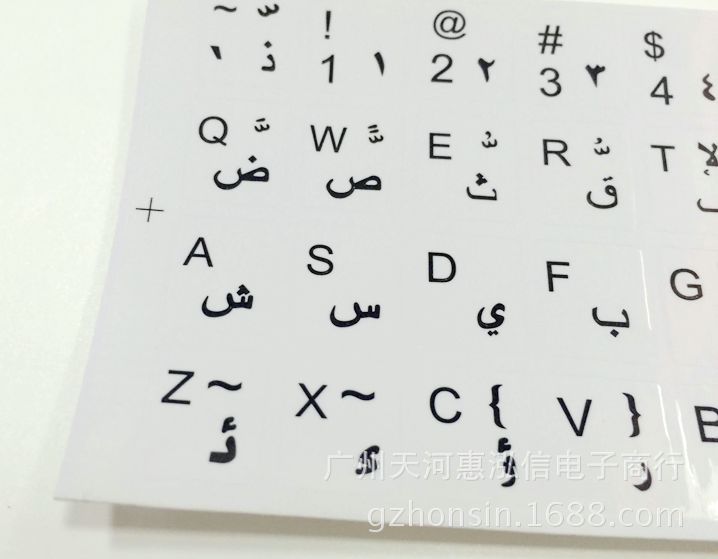 ~ ّ ! @ # $
ذ 1 ١ 2 ٢ 3 ٣ 4 ٤
Q W E R T
ض ص ث ق
A S D F G
ش س ي ب
Z ~ X ~ C { V } B
ر
广州天河惠泓信电子商行
gzhonsin.1688.com